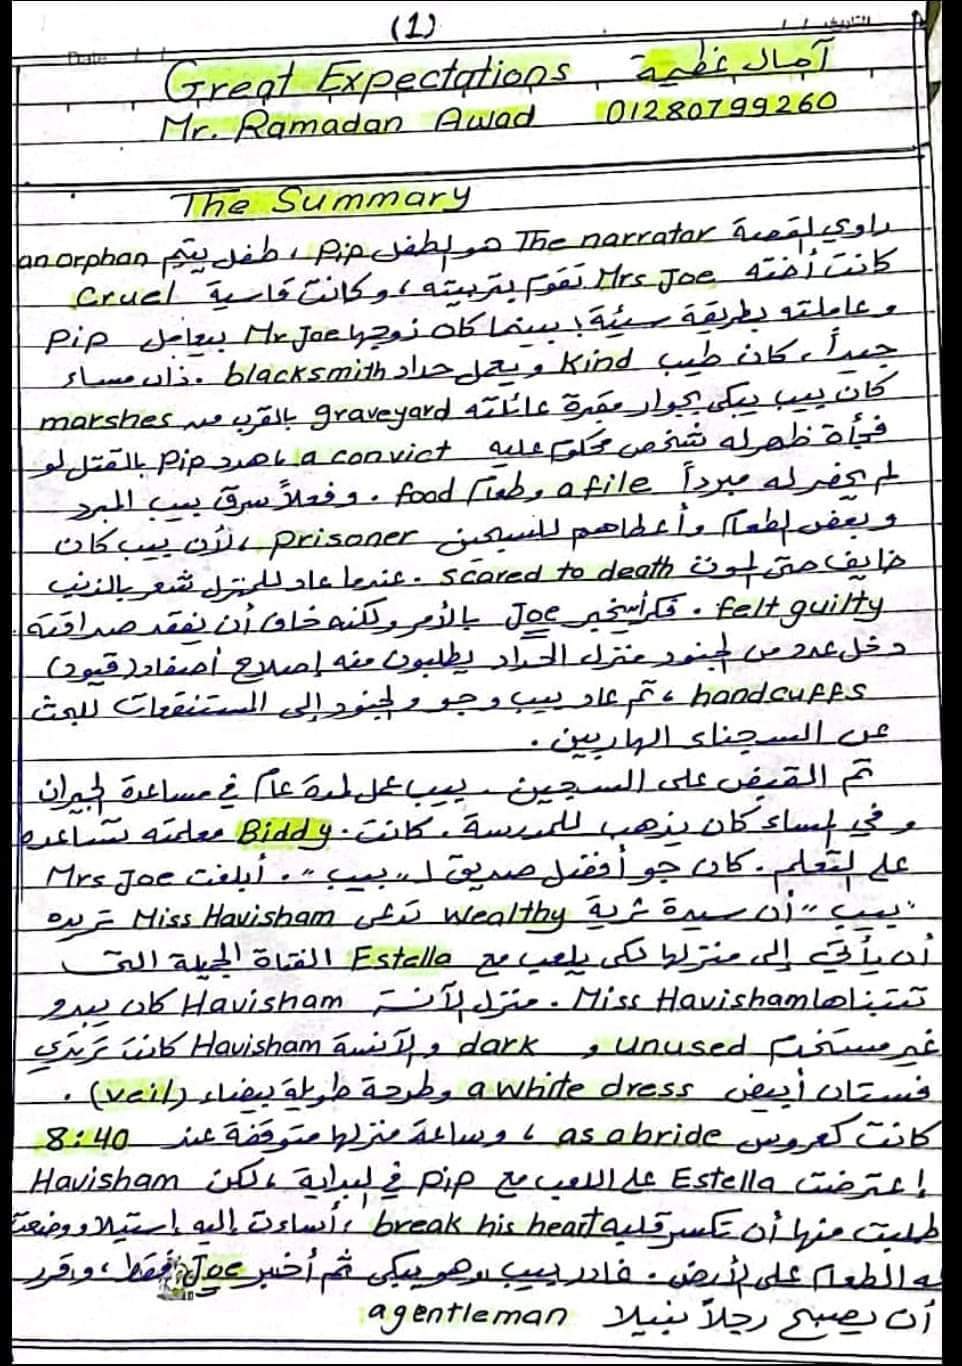 (1)
Date / / التاريخ / /
Great Expectations آمال عظيمة
Mr. Ramadan Awad 01280799260
The Summary
راوي القصة The narrator هو الطفل Pip، طفل يتيم an orphan
كانت أخته Mrs Joe تقوم بتربيته، وكانت قاسية Cruel
وعاملته بطريقة سيئة؛ بينما كان زوجها Mr Joe بيعامل Pip
جيداً، كان طيب Kind ويعمل حداد blacksmith. ذات مساء
كان بيب يبكي بجوار مقبرة عائلته graveyard بالقرب من marshes
فجأة ظهر له شخص محكوم عليه a convict، هدد Pip بالقتل لو
لم يحضر له مبرداً a file وطعام food. وفعلاً سرق بيب المبرد
وبعض الطعام وأعطاهم للسجين prisoner، لأن بيب كان
خايف حتى الموت scared to death. عندما عاد للمنزل شعر بالذنب
felt guilty. فكر أن يخبر Joe بالأمر ولكنه خاف أن يفقد صداقته
دخل عدد من الجنود منزل الحداد يطلبون منه إصلاح أصفاد (قيود)
handcuffs، ثم عاد بيب وجو والجنود إلى المستنقعات للبحث
عن السجناء الهاربين.
تم القبض على السجين. بيب عمل لمدة عام في مساعدة الجيران
وفي المساء كان يذهب للمدرسة. كانت Biddy معلمته تساعده
على التعلم. كان جو أفضل صديق لـ "بيب". أبلغت Mrs Joe
"بيب" أن سيدة ثرية wealthy تدعى Miss Havisham تريده
أن يأتي إلى منزلها لكي يلعب مع Estella الفتاة الجميلة التي
تتبناها Miss Havisham. منزل الآنسة Havisham كان يبدو
غير مستخدم unused و dark والآنسة Havisham كانت ترتدي
فستان أبيض a white dress وطرحة طويلة بيضاء (veil).
كانت كعروس as a bride، وساعة منزلها متوقفة عند 8:40
إعترضت Estella على اللعب مع Pip في البداية، لكن Havisham
طلبت منها أن تكسر قلبه break his heart، أساءت إليه إستيلا ووضعت
له الطعام على الأرض. غادر بيب وهو يبكي ثم أخبر Joe فقط، وقرر
أن يصبح رجلاً نبيلا a gentleman